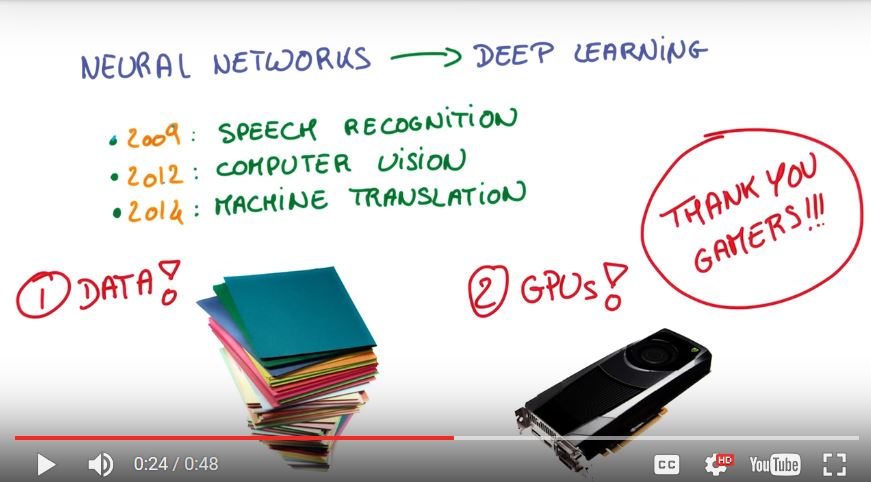 NEURAL NETWORKS → DEEP LEARNING
• 2009: SPEECH RECOGNITION
• 2012: COMPUTER VISION
• 2014: MACHINE TRANSLATION
THANK YOU
GAMERS!!!
① DATA!
② GPUs!
0:24 / 0:48
CC
HD
YouTube